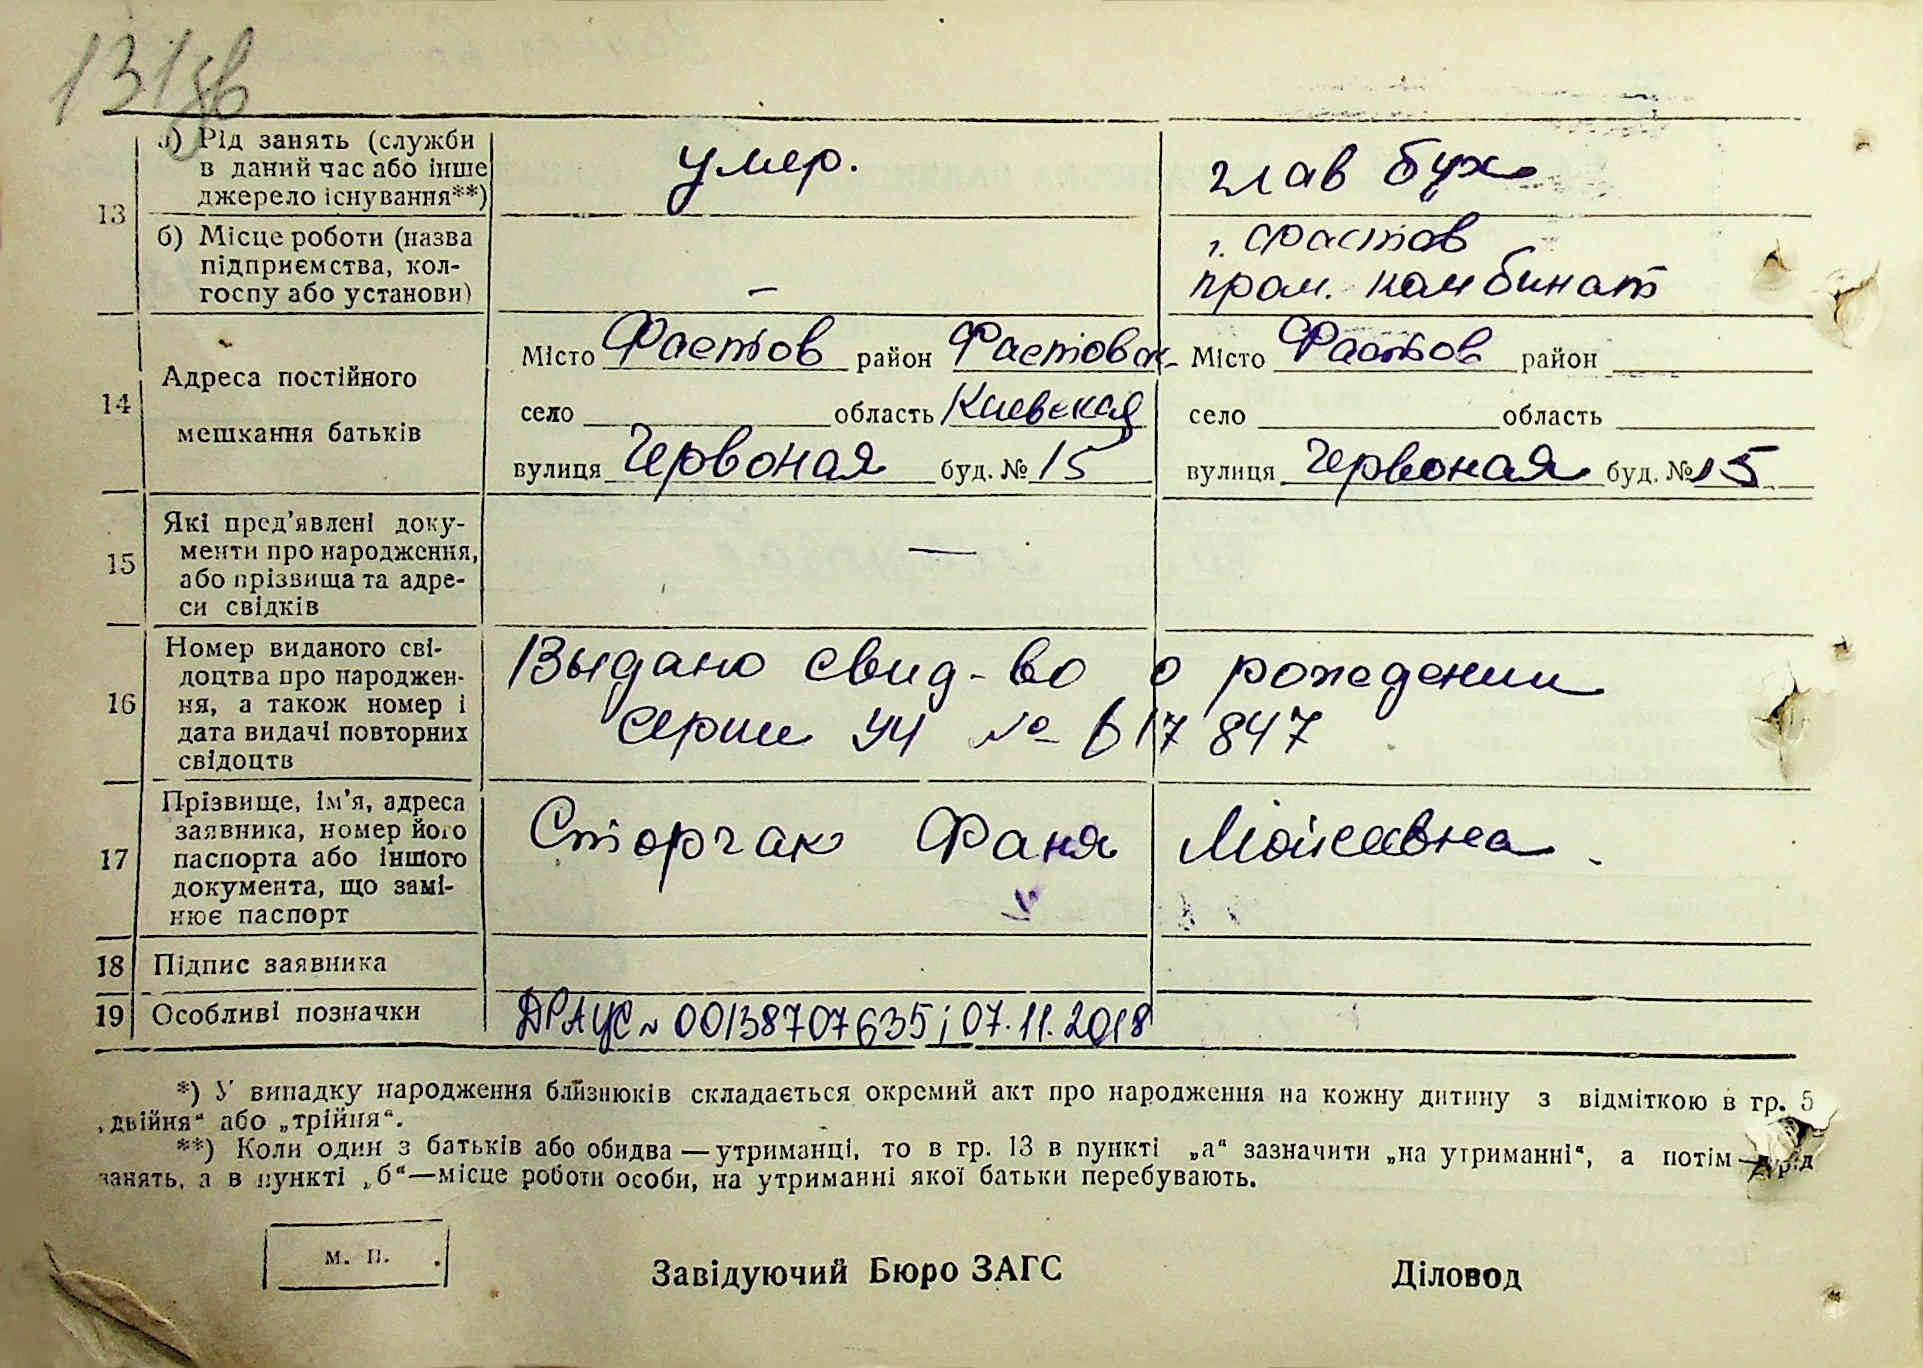 131зв
13
а) Рід занять (служби
в даний час або інше
джерело існування**)
умер.
глав бух
б) Місце роботи (назва
підприємства, кол-
госпу або установи)
—
г. Фастов
пром. комбинат
14
Адреса постійного
мешкання батьків
Місто Фастов район Фастовск-
село область Киевская
вулиця Червоная буд. № 15
Місто Фастов район
село область
вулиця Червоная буд. № 15
15
Які пред’явлені доку-
менти про народження,
або прізвища та адре-
си свідків
—
16
Номер виданого сві-
доцтва про народжен-
ня, а також номер і
дата видачі повторних
свідоцтв
Выдано свид-во о рождении
серии УЧ № 617847
17
Прізвище, ім’я, адреса
заявника, номер його
паспорта або іншого
документа, що замі-
нює паспорт
Сторчак Фаня Мойсеевна.
18
Підпис заявника
19
Особливі позначки
ДРАЦС № 00138707635; 07.11.2018
*) У випадку народження близнюків складається окремий акт про народження на кожну дитину з відміткою в гр. 5
„двійня“ або „трійня“.
**) Коли один з батьків або обидва — утриманці, то в гр. 13 в пункті „а“ зазначити „на утриманні“, а потім — рід
занять, а в пункті „б“—місце роботи особи, на утриманні якої батьки перебувають.
м. п.
Завідуючий Бюро ЗАГС
Діловод